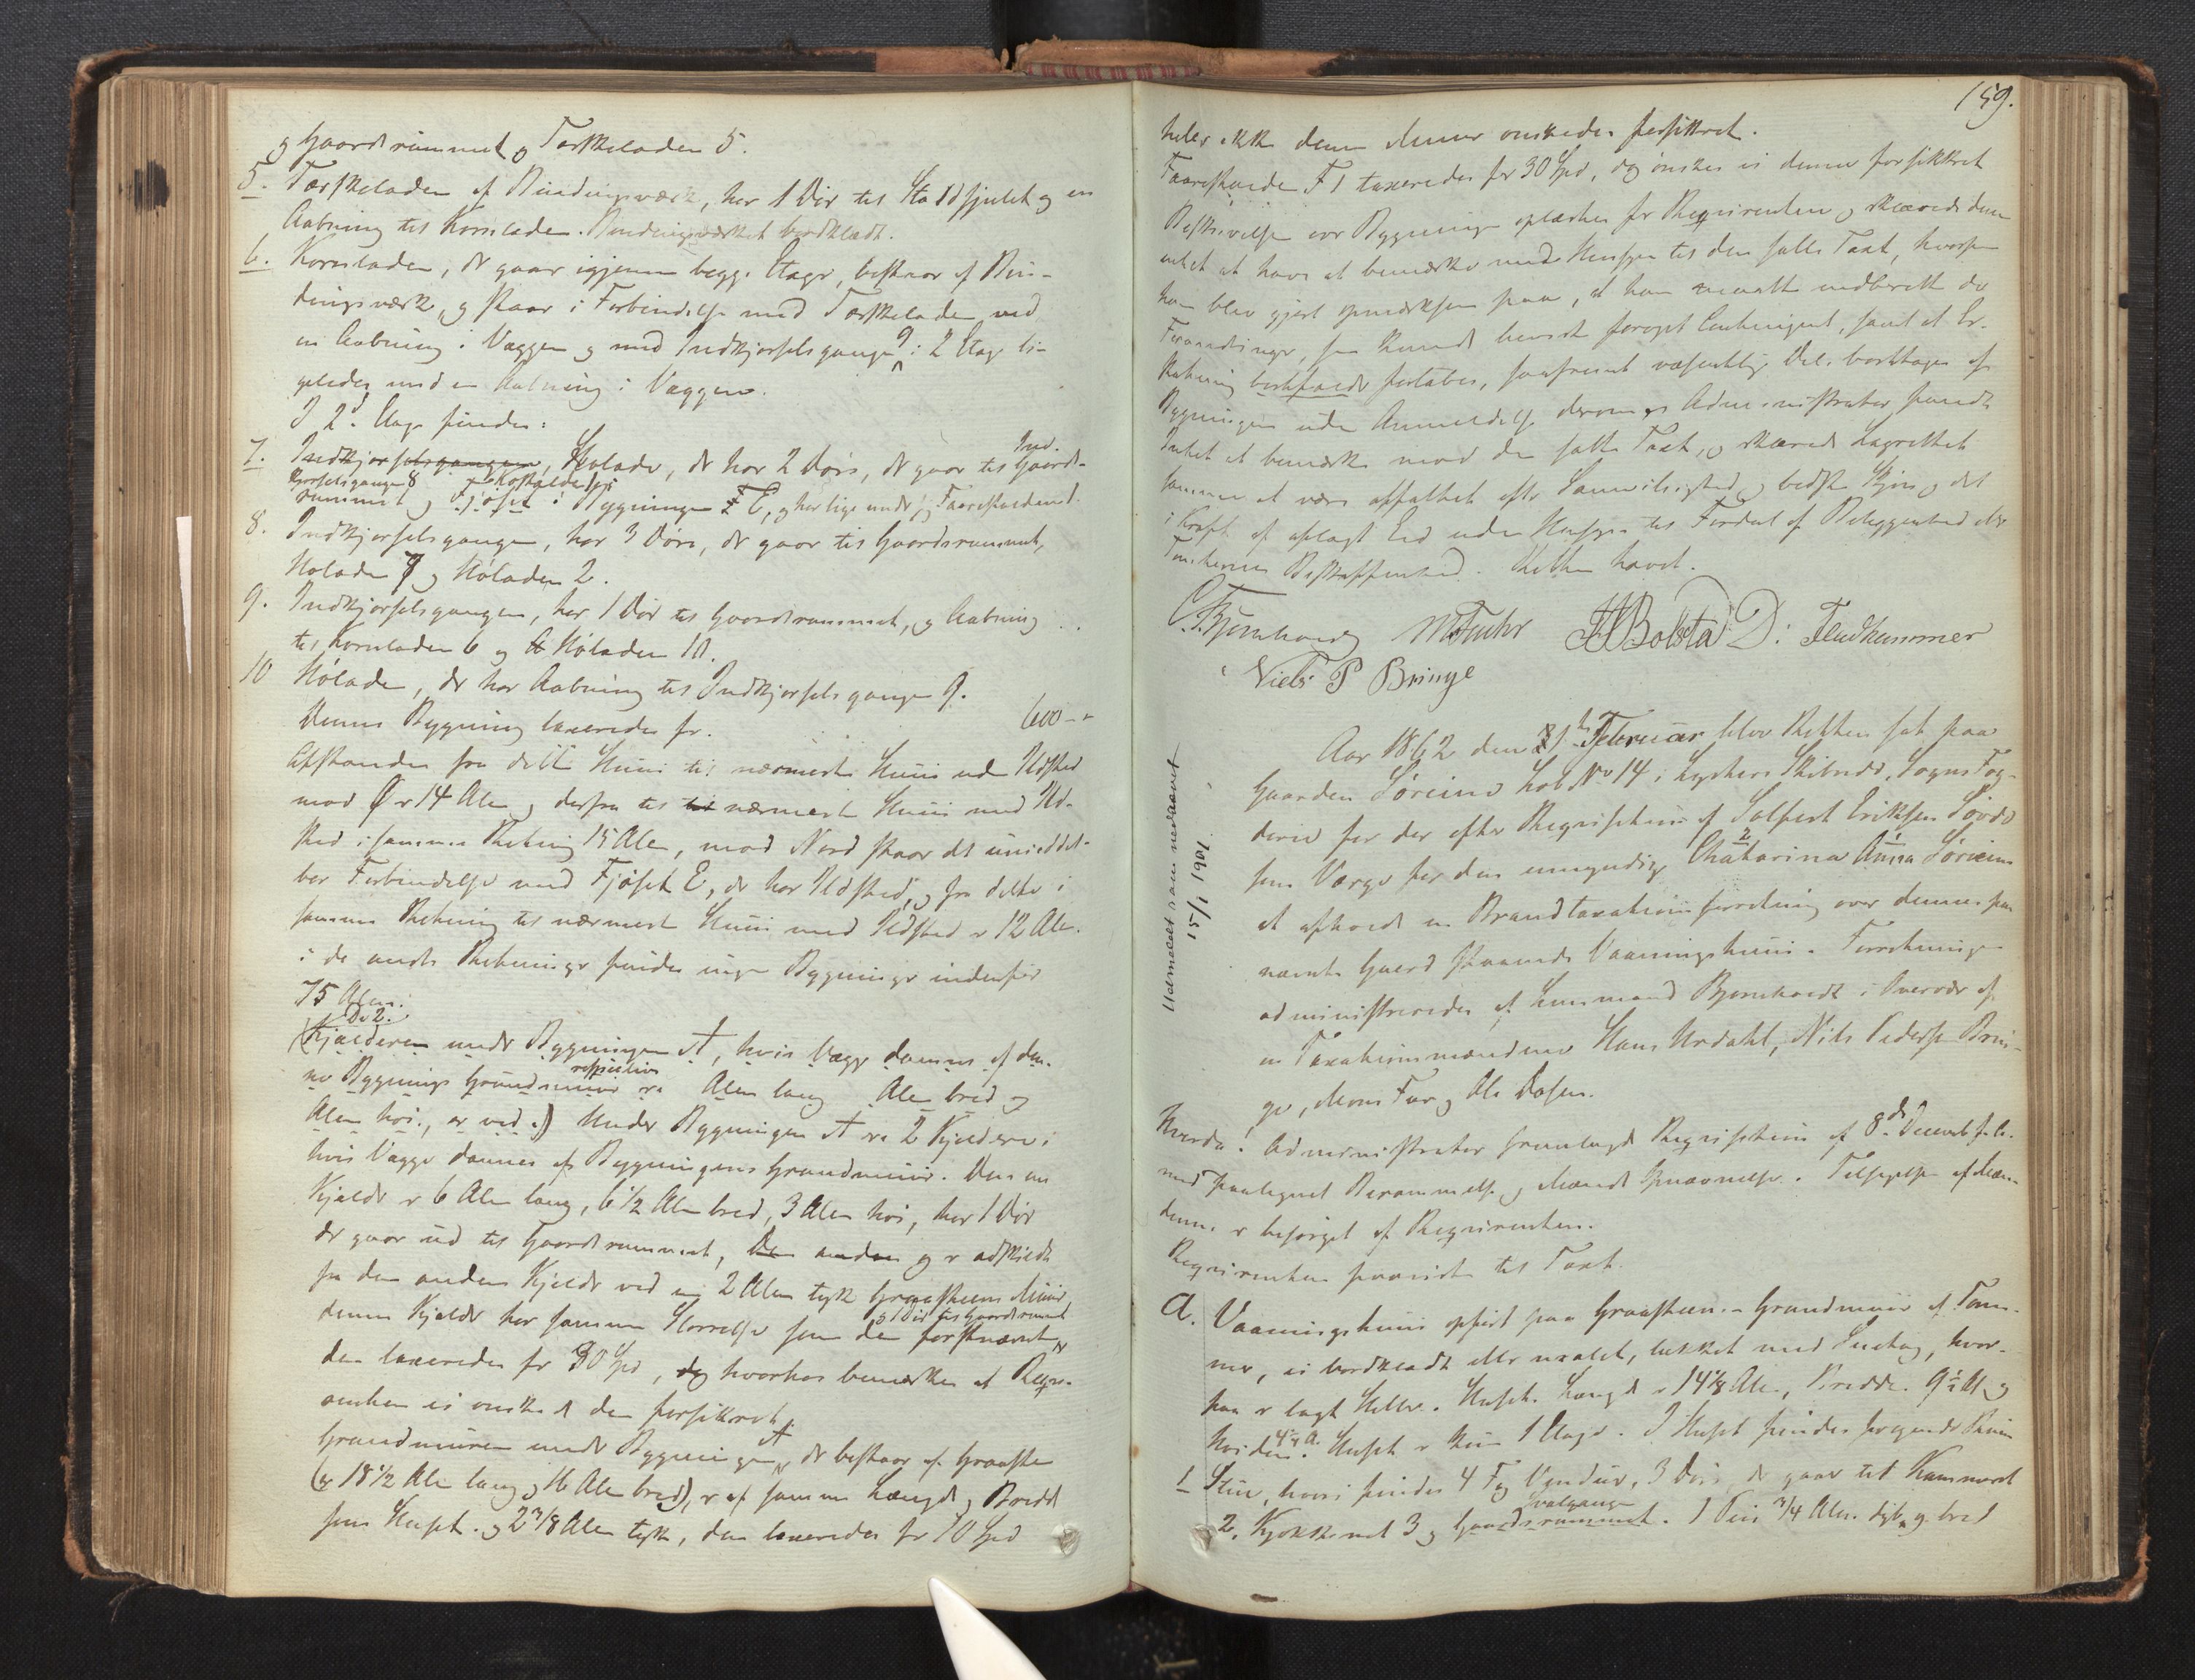 og Gaardsrummet og Tærskeladen 5.
5. Tærskeladen af Bindingsværk, har 1 Dør til Staldskjulet og en
Aabning til Kornladen. Bindingsværket bordklædt.
6. Kornladen, der gaar igjennem begge Etager, bestaar af Bin-
dingsværk, og staar i Forbindelse med Tærskeladen ved
en Aabning i Væggen og med Indkjørselsgangen 9 i 2 Etage li-
geledes med en Aabning i Væggen.
I 2d. Etage findes:
7. Indkjørselsgangen, Hølade, der har 2 Døre, der gaar til Ind-
kjørselsgangen 8 Gaards-
rummet og Fjøset i Bygningen E, og har lige under sig Faarestuen
8. Indkjørselsgangen, har 3 Døre, der gaar til Gaardsrummet,
Høladen 7 og Høladen 2.
9. Indkjørselsgangen, har 1 Dør til Gaardsrummet, og Aabning
til Kornladen 6 og Høladen 10.
10 Hølade, der har Aabning til Indkjørselsgangen 9.
Denne Bygning taxeredes for 600 -
Afstanden fra dette Huus til nærmeste Huus uden Ildsted
mod Ø er 14 Alen og derfra til nærmeste Huus med Ild-
sted i samme Retning 15 Alen, mod Nord staar det i umiddel-
bar Forbindelse med Fjøset E, der har Ildsted, og fra dette i
samme Retning til nærmeste Huus med Ildsted er 12 Alen.
i de andre Retninger findes ingen Bygninger indenfor
75 Alen.
De 2.
(Kjælderen under Bygningen A, hvis Vægge dannes af den-
ne Bygnings Grundmuur er respective Alen lang Alen bred og
Alen høi, er ved.) Under Bygningen A er 2 Kjældere,
hvis Vægge dannes af Bygningens Grundmuur. Den ene
Kjælder er 6 Alen lang, 6 1/2 Alen bred, 3 Alen høi, har 1 Dør
der gaar ud til Gaardsrummet, Den anden og er adskildt
fra den anden Kjælder ved en 2 Alen tyk Graasteens Muur,
denne Kjælder har samme Størrelse som den førstnævnte og 1 Dør til Gaardsrummet
den taxeredes for 30 Spd, og hvorhos bemærkes at Reqvi-
renten ei ønskede den forsikret.
Grundmuren under Bygningen A, der bestaar af Graasten
(er 18 1/2 Alen lang og 16 Alen bred), er af samme Længde og Bredde
som Huset. og 2 7/8 Alen tyk, den taxeredes for 70 Spd
159.
heller ikke denne Muur ønskedes forsikret.
Faarestuen F 1 taxeredes for 30 Spd, og ønskes ei denne forsikret
Beskrivelsen over Bygningen oplæstes for Reqvirenten og erklærede denne
intet at have at bemærke med Hensyn til den satte Taxt, hvorhos
han blev gjort opmærksom paa, at han maatte indberette de
Forandringer, som kunde bevirke forøget Contingent, samt at Er-
statning fortabes, saafremt væsentlige Dele borttages af
Bygningen uden Anmeldelse derom. Administrator fandt
Intet at bemærke mod den satte Taxt, og erklærede Lagrettet
samme at være affattet efter Samvittighed og bedste Skjøn og det
i Kraft af aflagt Eed uden Hensyn til Fordeel af Beliggenhed eller
Tomternes Beskaffenhed. Retten hævet.
C. T. Bjernhardt M Fuhr H Bolsta D: Fludkammer
Niels P Bringe
Udmeldt som nedrevet
15/1 1901
Aar 1862 den 1ste Februar blev Retten sat paa
Gaarden Søreim Løb No 14 i Lysters Skibrede, Sogns Fog-
derie for der efter Reqvisition af Solfest Eriksen Søvde
som Værge for den umyndige Chatarina Anna Søreim
at afholde en Brandtaxationsforretning over dennes paa
nævnte Gaard staaende Vaaningshuus. Forretningen
administreredes af Lensmand Bjernhardt i Overvær af
Taxationsmændene Hans Urdahl, Nils Pedersen Brin-
ge, Mons Fuhr og Ole Dosen.
Hvorda! Administrator fremlagde Reqvisition af 8de Decemb. f. A.
med paategnet Berammelse og Mænds Opnævnelse. Tilsigelsen af Mæn-
dene er besørget af Reqvirenten.
Reqvirenten paaviste til Taxt
A. Vaaningshuus opført paa Graasteens Grundmuur af Tøm-
mer, ei bordklædt eller malet, tækket med Sutag, hvor-
paa er lagt Heller. Husets Længde er 14 1/8 Alen, Bredde 9 1/2 Al. og
Høiden 4 1/4 A. Huset er kun 1 Etage. I Huset findes følgende Rum
1 Stue, hvori findes 4 Fag Vinduer, 3 Døre, der gaar til Kammeret
2, Kjøkkenet 3 og Svalgangen Gaardsrummet. 1 Ovn 3/4 Alen dyb og bred